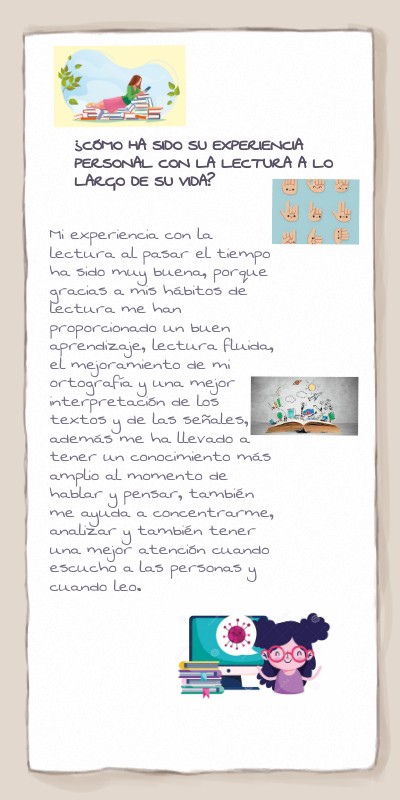 ¿CÓMO HA SIDO SU EXPERIENCIA
PERSONAL CON LA LECTURA A LO
LARGO DE SU VIDA?
Mi experiencia con la
lectura al pasar el tiempo
ha sido muy buena, porque
gracias a mis hábitos de
lectura me han
proporcionado un buen
aprendizaje, lectura fluida,
el mejoramiento de mi
ortografía y una mejor
interpretación de los
textos y de las señales,
además me ha llevado a
tener un conocimiento más
amplio al momento de
hablar y pensar, también
me ayuda a concentrarme,
analizar y también tener
una mejor atención cuando
escucho a las personas y
cuando leo.